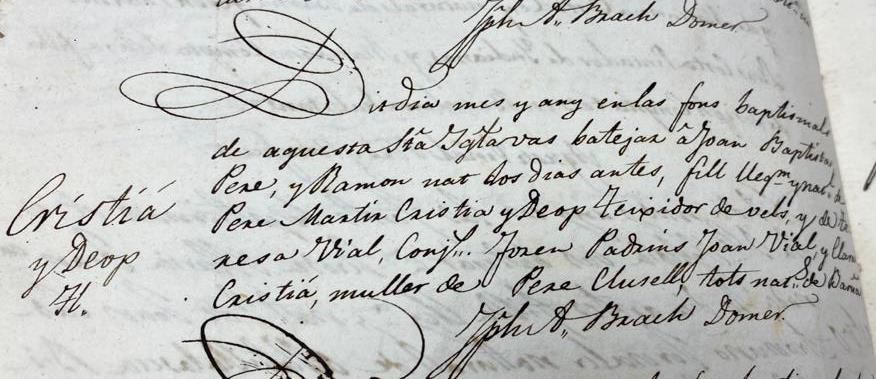 Jph A,, Brach Domer
Dit dia mes y any en las fons baptismals
de aquesta Sta Igla vas batejar â Joan Baptista
Pere, y Ramon nat dos dias antes, fill llegm y natl de
Pere Martir Cristia y Deop Teixidor de vels, y de Te
Cristiá
resa Vial, Conjs. Foren Padrins Joan Vial, y Clara
y Deop
Cristiá, muller de Pere Clusell, tots nats de
H.
Jph A,, Brach Domer